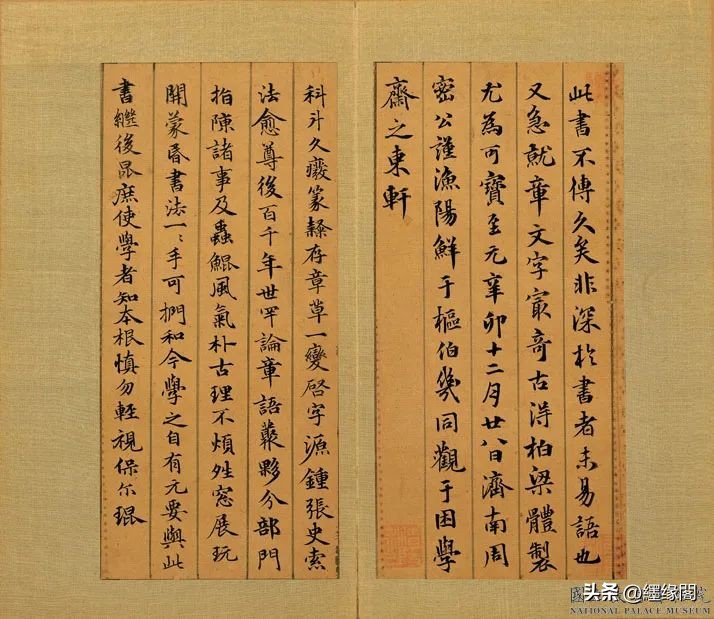 此書不傳久矣非深於書者未易語也
又急就章文字㝡奇古得柏梁體製
尤為可寶至元辛卯十二月廿八日濟南周
密公謹漁陽鮮于樞伯幾同觀于困學
齋之東軒
科斗久癈篆隸存章草一變啓字源鍾張史索
法愈尊後百千年世罕論章語叢夥分部門
指陳諸事及蟲鯤風氣朴古理不煩窓展玩
開蒙昏書法一〻手可捫和今學之自有元要與此
書繼後昆庶使學者知本根慎勿輕視保尒琨
头条@纆缘阁
國
院
NATIONAL PALACE MUSEUM